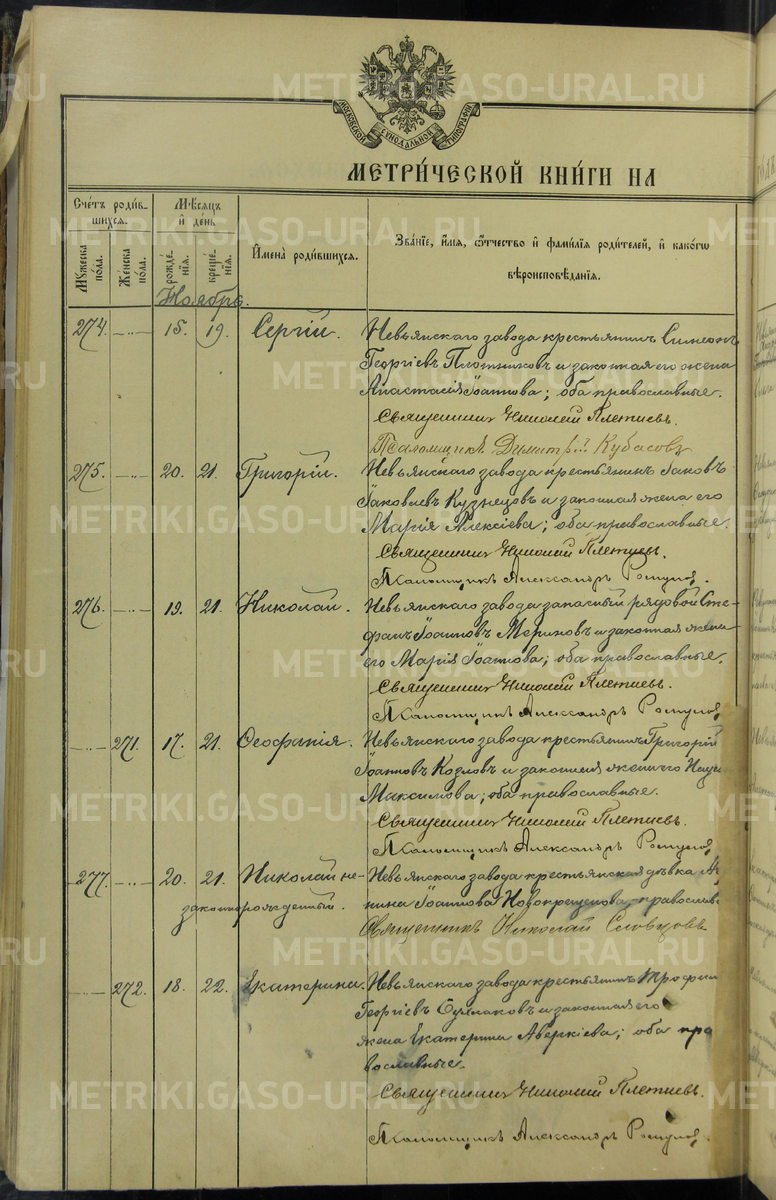 МОСКОВСКОЙ СѴНОДАЛЬНОЙ ТИПОГРАФІИ
МЕТРИ́ЧЕСКОЙ КНИ́ГИ НА
Сче́тъ роди́в-
шихся.
Мѣ́сяцъ
и҆ де́нь
Мꙋ́жеска по́ла.
Же́нска по́ла.
рожде́-
нія.
креще́-
нія.
И҆мена̀ роди́вшихся.
Зва́ніе, и҆́мя, ѻ҆́тчество и҆ фами́лія роди́телей, и҆ како́гѡ
вѣроисповѣ́данія.
Ноябрь.
274. —„— 15. 19. Сергій. Невьянскаго завода крестьянинъ Симеонъ
Георгіевъ Плотниковъ и законная его жена
Анастасія Іоаннова; оба православные.
Священникъ Николай Плетневъ.
Псаломщикъ Димитрій Кубасовъ
275. —„— 20. 21. Григорій. Невьянскаго завода крестьянинъ Іаковъ
Іаковлевъ Кузнецовъ и законная жена его
Марія Алексіева; оба православные.
Священникъ Николай Плетневъ.
Псаломщикъ Александръ
276. —„— 19. 21. Николай. Невьянскаго завода запасный рядовой Сте-
фанъ Іоанновъ Мериновъ и законная жена
его Марія Іоаннова; оба православные.
Священникъ Николай Плетневъ.
Псаломщикъ Александръ
—„— 271. 17. 21. Ѳеофанія. Невьянскаго завода крестьянинъ Григорій
Іоанновъ Козловъ и законная жена его
Максимова; оба православные.
Священникъ Николай Плетневъ.
Псаломщикъ Александръ
277. —„— 20. 21. Николай не- Невьянскаго завода крестьянская дѣвка
законнорожденный. Іоаннова Новокрещенова, православ
Священникъ Николай Словцовъ
—„— 272. 18. 22. Екатерина. Невьянскаго завода крестьянинъ Трофим
Георгіевъ и законная его
жена Екатерина Аверкіева; оба пра
вославные.
Священникъ Николай Плетневъ.
Псаломщикъ Александръ
METRIKI.GASO-URAL.RU